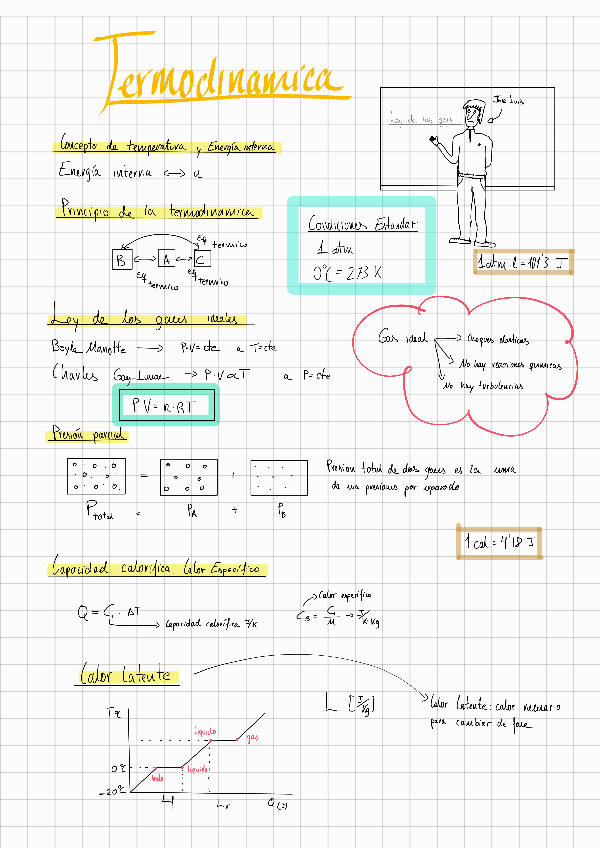 Termodinamica
Jose Luis
Ley de los gas
Concepto de temperatura y Energía interna
Energía interna <-> u
Principio de la termodinamica
eq termico
B <-> A <-> C
eq termico
eq termico
Condiciones Estandar
1 atm
0ºC = 273 K
1 atm·l = 101'3 J
Ley de los gases ideales
Boyle Mariotte -> P·V = cte a T = cte
Charles Gay-Lussac -> P·V ∝ T a P = cte
PV = n·RT
Gas ideal -> Choques elasticos
No hay reacciones quimicas
No hay turbulencias
Presión parcial
= +
P total = PA + PB
Presion total de dos gases es la suma
de sus presiones por separado
1 cal = 4'18 J
Capacidad calorifica Calor Especifico
Q = C · ΔT
Capacidad calorifica J/K
Calor especifico
= C/M -> J/K Kg
Calor Latente
L [J/Kg]
Calor latente: calor necesario
para cambiar de fase
T ºC
liquido
gas
0ºC
hielo
liquido
-20ºC
Lf
Lv
Q (J)